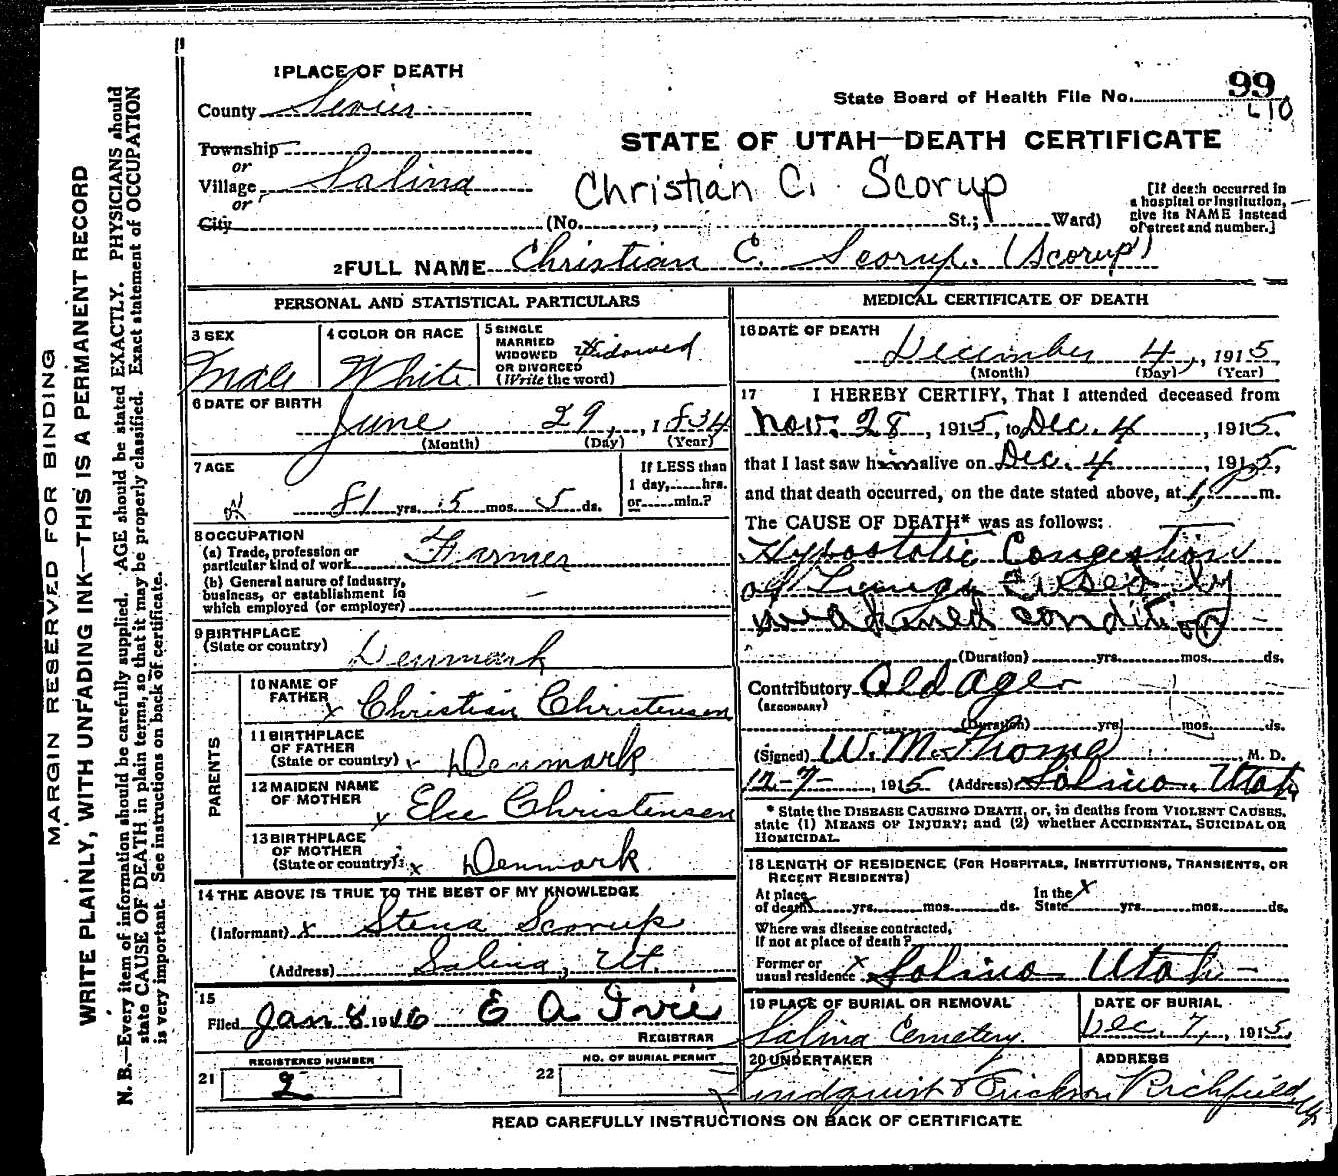 1 PLACE OF DEATH
County Sevier
State Board of Health File No. 99
410
Township
STATE OF UTAH—DEATH CERTIFICATE
or
Village Salina
Christian C. Scorup
or
City (No. , St.; Ward)
[If death occurred in
a hospital or institution,
give its NAME instead
of street and number.]
2 FULL NAME Christian C. Scorup. (Scorup)
PERSONAL AND STATISTICAL PARTICULARS
3 SEX
Male
4 COLOR OR RACE
White
5 SINGLE
MARRIED
WIDOWED
OR DIVORCED
(Write the word)
Widowed
6 DATE OF BIRTH
June 29, 1834
(Month) (Day) (Year)
7 AGE
81 yrs. 5 mos. 5 ds.
If LESS than
1 day, hrs.
or min.?
8 OCCUPATION
(a) Trade, profession or
particular kind of work Farmer
(b) General nature of industry,
business, or establishment in
which employed (or employer) —
9 BIRTHPLACE
(State or country)
Denmark
PARENTS
10 NAME OF
FATHER x Christian Christensen
11 BIRTHPLACE
OF FATHER
(State or country) x Denmark
12 MAIDEN NAME
OF MOTHER x Else Christensen
13 BIRTHPLACE
OF MOTHER
(State or country) x Denmark.
14 THE ABOVE IS TRUE TO THE BEST OF MY KNOWLEDGE
(Informant) x Stena Scorup
(Address) Salina, Ut.
15
Filed Jan 8 1916 E A Ivie
REGISTRAR
REGISTERED NUMBER
21 2
NO. OF BURIAL PERMIT
22
MEDICAL CERTIFICATE OF DEATH
16 DATE OF DEATH
December 4, 1915
(Month) (Day) (Year)
17 I HEREBY CERTIFY, That I attended deceased from
Nov. 28, 1915, to Dec. 4, 1915.
that I last saw him alive on Dec. 4, 1915,
and that death occurred, on the date stated above, at 1 P m.
The CAUSE OF DEATH* was as follows:
Hypostatic Congestion
of Lungs caused by
weakened condition
(Duration) yrs. mos. ds.
Contributory Old age
(SECONDARY)
(Duration) yrs. mos. ds.
(Signed) W. M. Thome M. D.
12-7- , 1915 (Address) Salina, Utah
* State the DISEASE CAUSING DEATH, or, in deaths from VIOLENT CAUSES,
state (1) MEANS OF INJURY; and (2) whether ACCIDENTAL, SUICIDAL OR
HOMICIDAL.
18 LENGTH OF RESIDENCE (FOR HOSPITALS, INSTITUTIONS, TRANSIENTS, OR
RECENT RESIDENTS)
At place
of death x yrs. mos. ds.
In the
State x yrs. mos. ds.
Where was disease contracted,
if not at place of death?
Former or
usual residence x Salina Utah —
19 PLACE OF BURIAL OR REMOVAL
Salina Cemetery.
DATE OF BURIAL
Dec. 7, 1915
20 UNDERTAKER
Lindquist & Erickson
ADDRESS
Richfield
READ CAREFULLY INSTRUCTIONS ON BACK OF CERTIFICATE
MARGIN RESERVED FOR BINDING
WRITE PLAINLY, WITH UNFADING INK—THIS IS A PERMANENT RECORD
N. B.—Every item of information should be carefully supplied. AGE should be stated EXACTLY. PHYSICIANS should
state CAUSE OF DEATH in plain terms, so that it may be properly classified. Exact statement of OCCUPATION
is very important. See instructions on back of certificate.